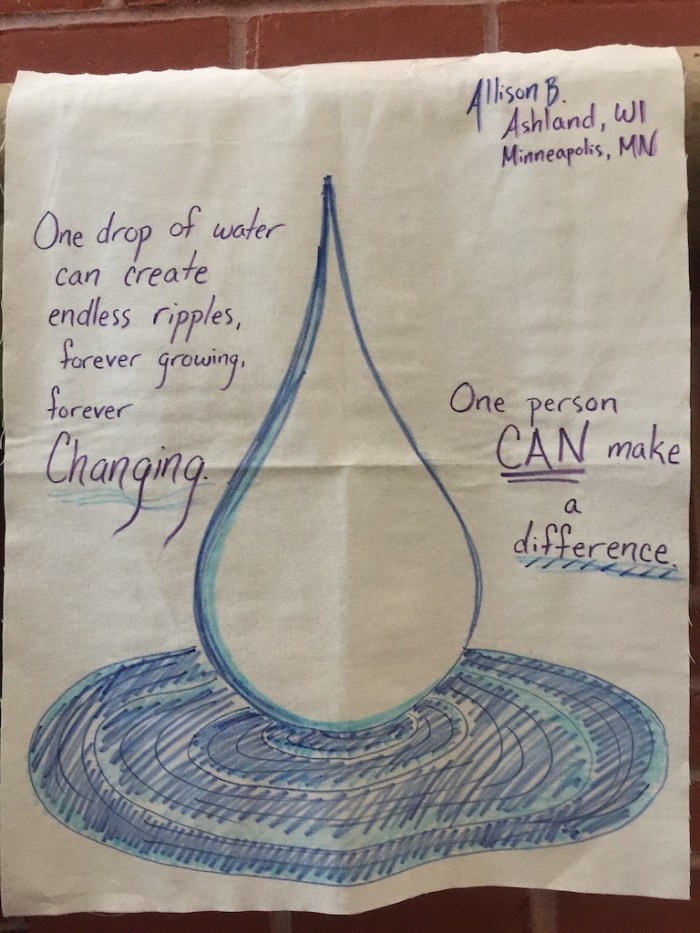 Allison B.
Ashland, WI
Minneapolis, MN
One drop of water
can create
endless ripples,
forever growing,
forever
Changing.
One person
CAN make
a
difference.